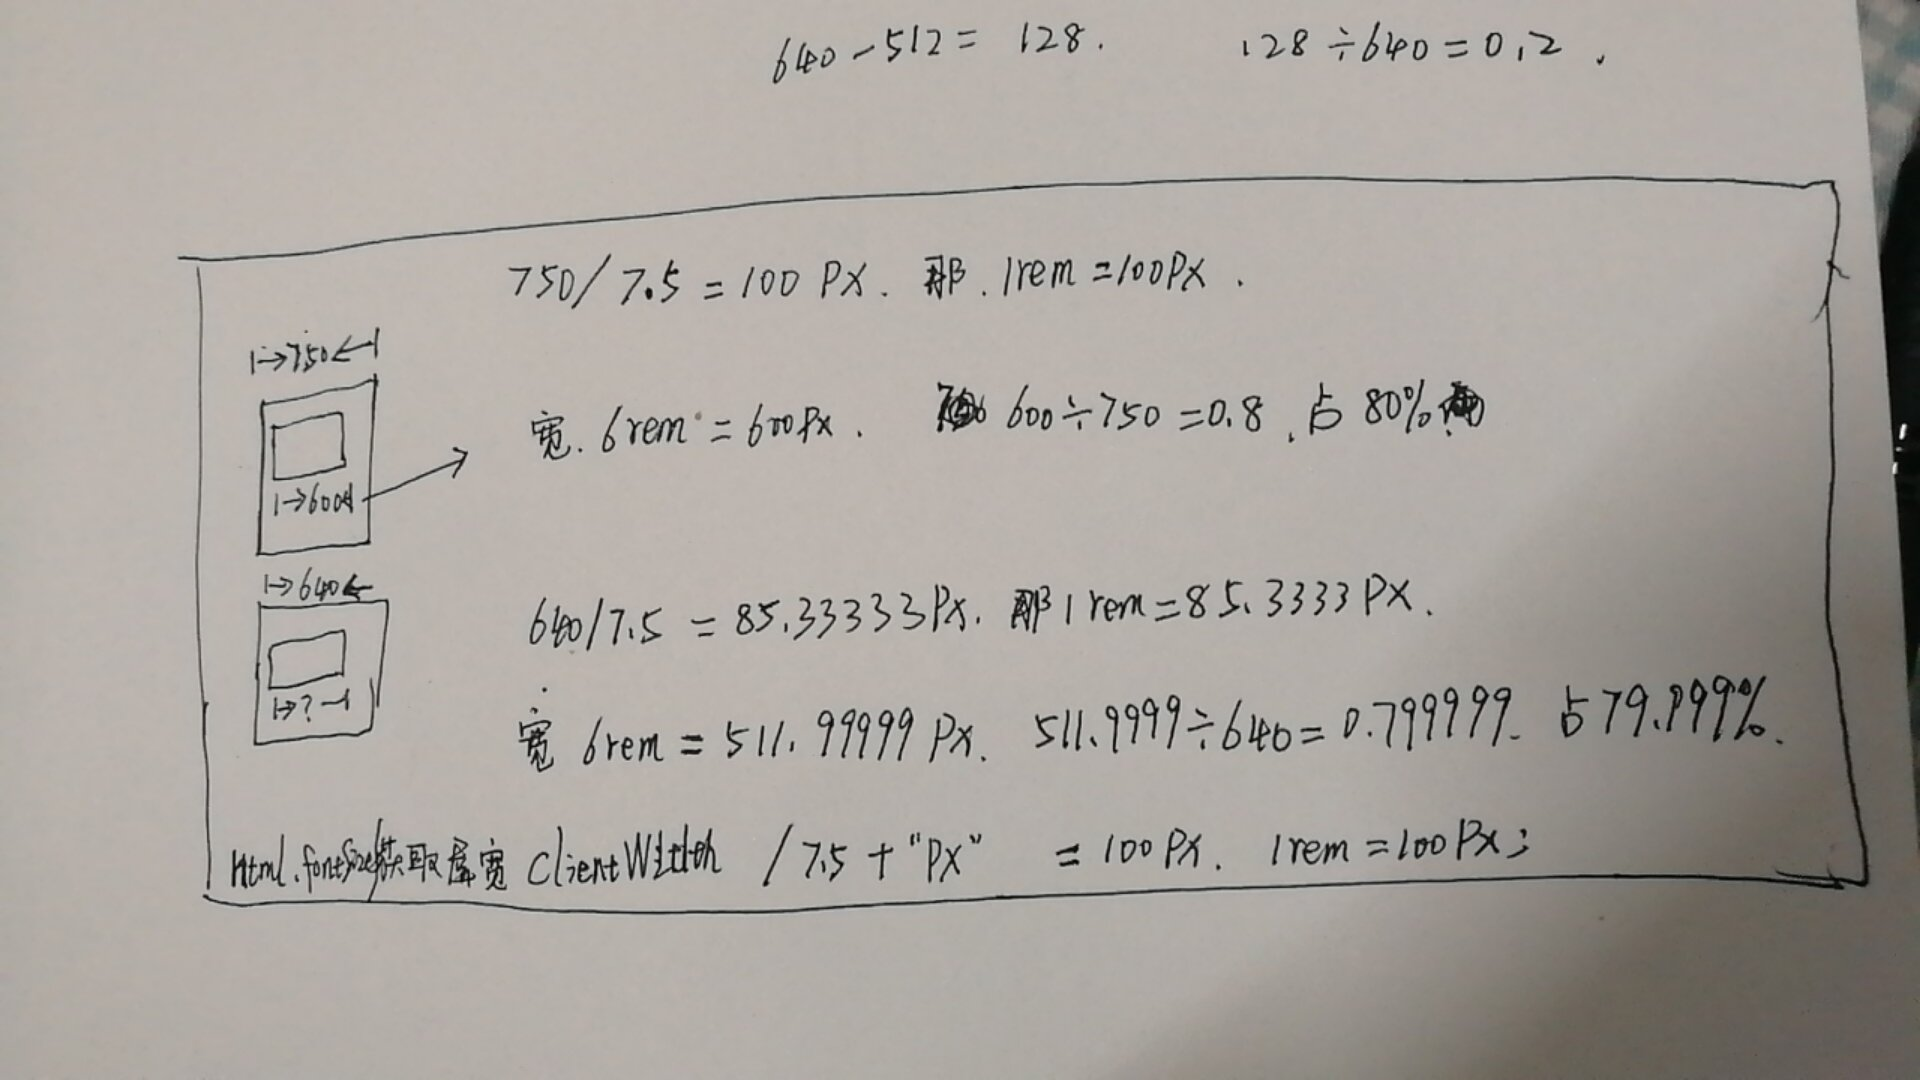 640-512= 128. 128÷640=0.2.
750/7.5=100PX. 那.1rem=100PX.
750
宽.6rem=600Px. 600÷750=0.8.占80%
600
640
640/7.5=85.33333Px.那1rem=85.3333PX.
?
宽6rem=511.99999Px. 511.9999÷640=0.799999.占79.999%.
Html.fontSize获取屏宽ClientWidth /7.5+"PX" =100PX. 1rem=100PX;